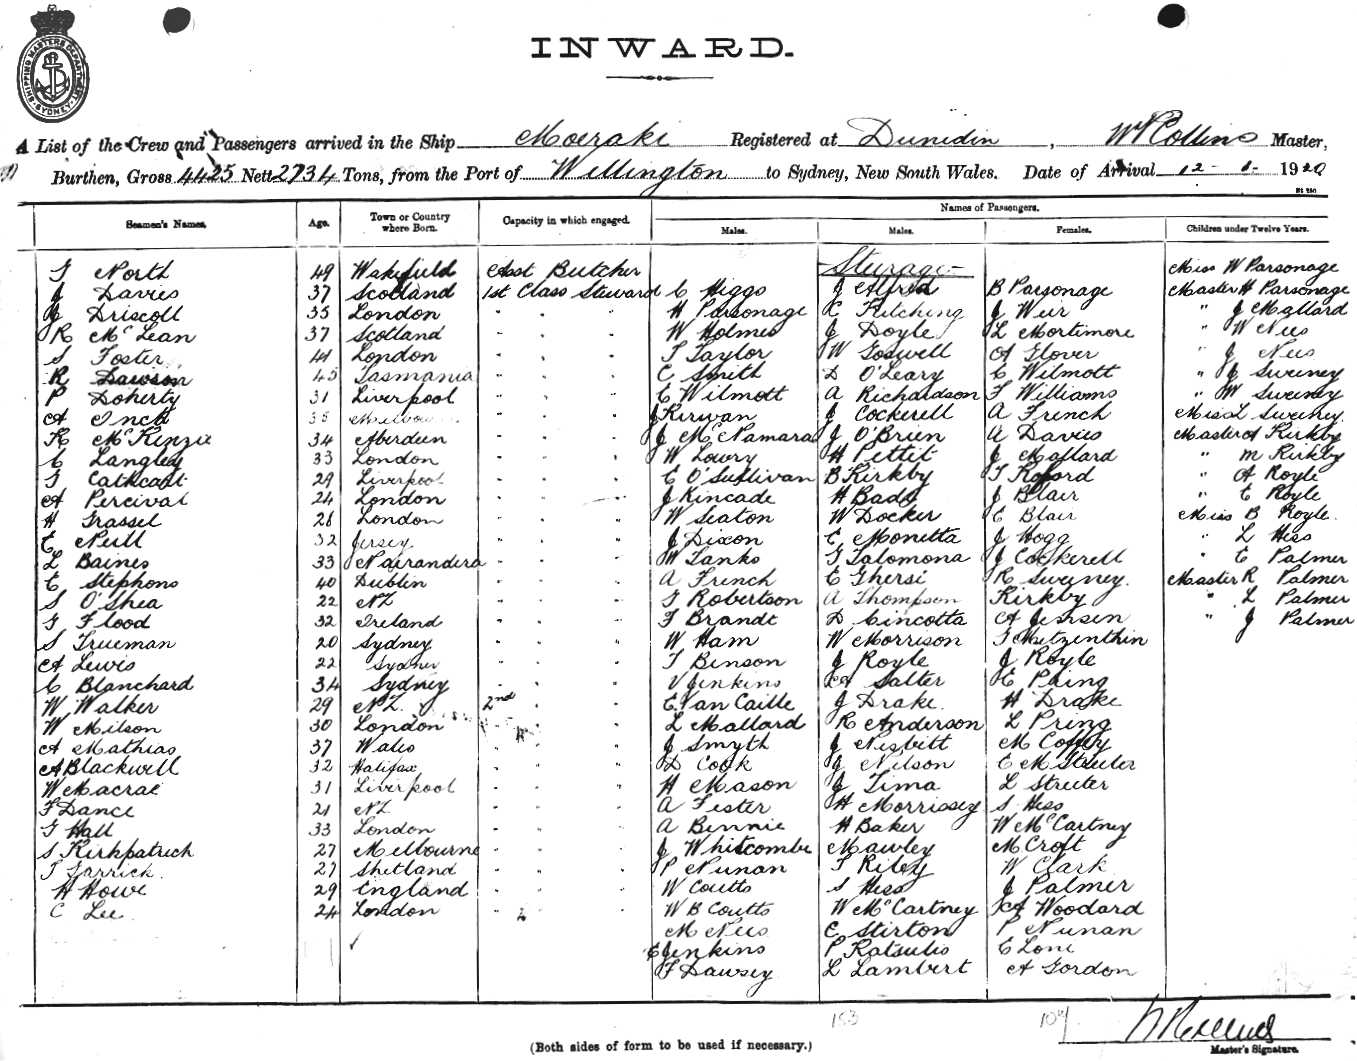 SHIPPING MASTERS DEPARTMENT
SYDNEY
INWARD.
A List of the Crew and Passengers arrived in the Ship Moeraki Registered at Dunedin, Wm Collins Master,
Burthen, Gross 4425 Nett 2734 Tons, from the Port of Wellington to Sydney, New South Wales. Date of Arrival 12 - 1 - 1920
Names of Passengers.
Seamen's Names. Age. Town or Country where Born. Capacity in which engaged. Males. Males. Females. Children under Twelve Years.
North 49 Wakefield Asst Butcher Steerage Miss W Parsonage
J Davies 37 Scotland 1st Class Steward C Higgs J Alfred B Parsonage Master H Parsonage
J Driscoll 35 London " " " H Parsonage C Fitching J Weir " J Mallard
R McLean 37 Scotland " " " W Holmes J Doyle L Mortimore " W Nees
S Foster 41 London " " " T Taylor W Goswell A Glover " J Nees
R Dawson 45 Tasmania " " " C Smith D O'Leary C Wilmott " J Sweeney
P Doherty 31 Liverpool " " " E Wilmott A Richardson F Williams " M Sweeney
A Inch 38 " " " J Kirwan J Cockerell A French Miss L Sweeney
K McKenzie 34 Aberdeen " " " J McNamara J O'Brien A Davies Master A Kirkby
C Langley 33 London " " " W Lowry H Pettit J Mallard " M Kirkby
Cathcart 29 Liverpool " " " E O'Sullivan B Kirkby " A Royle
A Percival 24 London " " J Kincade H Bade J Blair " E Royle
H Grassel 26 London " " " W Seaton W Docker E Blair Miss B Royle
E Neill 32 Jersey " " " J Dixon C Monetta J Hogg " L Hess
L Baines 33 Narrandera " " " W Tanks Salomona J Cockerell " E Palmer
E Stephens 40 Dublin " " " A French E Ghersi R Sweeney. Master R Palmer
S O'Shea 22 NZ " " " Robertson A Thompson Kirkby " L Palmer
Flood 32 Ireland " " " F Brandt D Cincotta A Jensen " J Palmer
S Trueman 20 Sydney " " " W Ham W Morrison
A Lewis 22 Sydney " " " T Benson J Royle J Royle
C Blanchard 34 Sydney " " " V Jenkins A Salter E Pring
W Walker 29 NZ. 2nd " " " E Van Caille J Drake. H Drake
W Milson 30 London L Mallard R Anderson L Pring
A Mathias 37 Wales " " " J Smyth J Nesbitt M Coffey
A Blackwell 32 Halifax " " " D Cook J Neilson E M Streeter
W Macrae 31 Liverpool " " " H Mason J Tima L Streeter
F Dance 21 NZ " " " A Fester H Morrissey S Hess
Hall 33 London " " " A Bennie H Baker W McCartney
S Kirkpatrick 27 Melbourne " " " J Whitcombe Mawley M Croft
T Garrick. 27 Shetland " " " P Nunan T Riley W Clark
H Howe 29 England " " " W Coutts S Hess J Palmer
C Lee 24 London " " " W B Coutts W McCartney A Woodard
M Nees C Stirton P Nunan
E Jenkins P Ratsulis E Lone
F Dawsey L Lambert A Gordon
153 104
Master's Signature.
(Both sides of form to be used if necessary.)